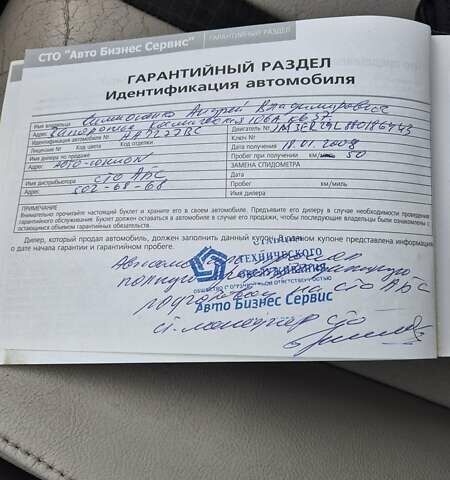 СТО "Авто Бизнес Сервис" ГАРАНТИЙНЫЙ РАЗДЕЛ
ГАРАНТИЙНЫЙ РАЗДЕЛ
Идентификация автомобиля
Имя владельца Андрей Владимирович
Адрес Запорожье 106А кв 37
Идентификация автомобиля № Двигатель №
Лицензия № Код цвета Код отделки Ключ №
Имя дилера по продаже Дата получения 18.01.2008
Адрес Авто-Юнион Пробег при получении км/миль 50
ЗАМЕНА СПИДОМЕТРА
Имя дистрибьютора СТО АБС Дата
Адрес 602-68-68 Пробег км/миль
Имя дилера
ПРИМЕЧАНИЕ
Внимательно прочитайте настоящий буклет и храните его в своем автомобиле. Предъявите его дилеру в случае необходимости проведения
гарантийного обслуживания. Буклет должен оставаться в автомобиле в случае его продажи, чтобы последующие владельцы были ознакомлены с
остающимся объемом гарантийных обязательств.
Дилер, который продал автомобиль, должен заполнить данный купон. В данном купоне представлена информация
о дате начала гарантии и гарантийном пробеге.
СТАНЦИЯ
ТЕХНИЧЕСКОГО
ОБСЛУЖИВАНИЯ
ОБЩЕСТВО С ОГРАНИЧЕННОЙ ОТВЕТСТВЕННОСТЬЮ
подготовку на СТО АБС
Авто Бизнес Сервис
ст. менеджер СТО